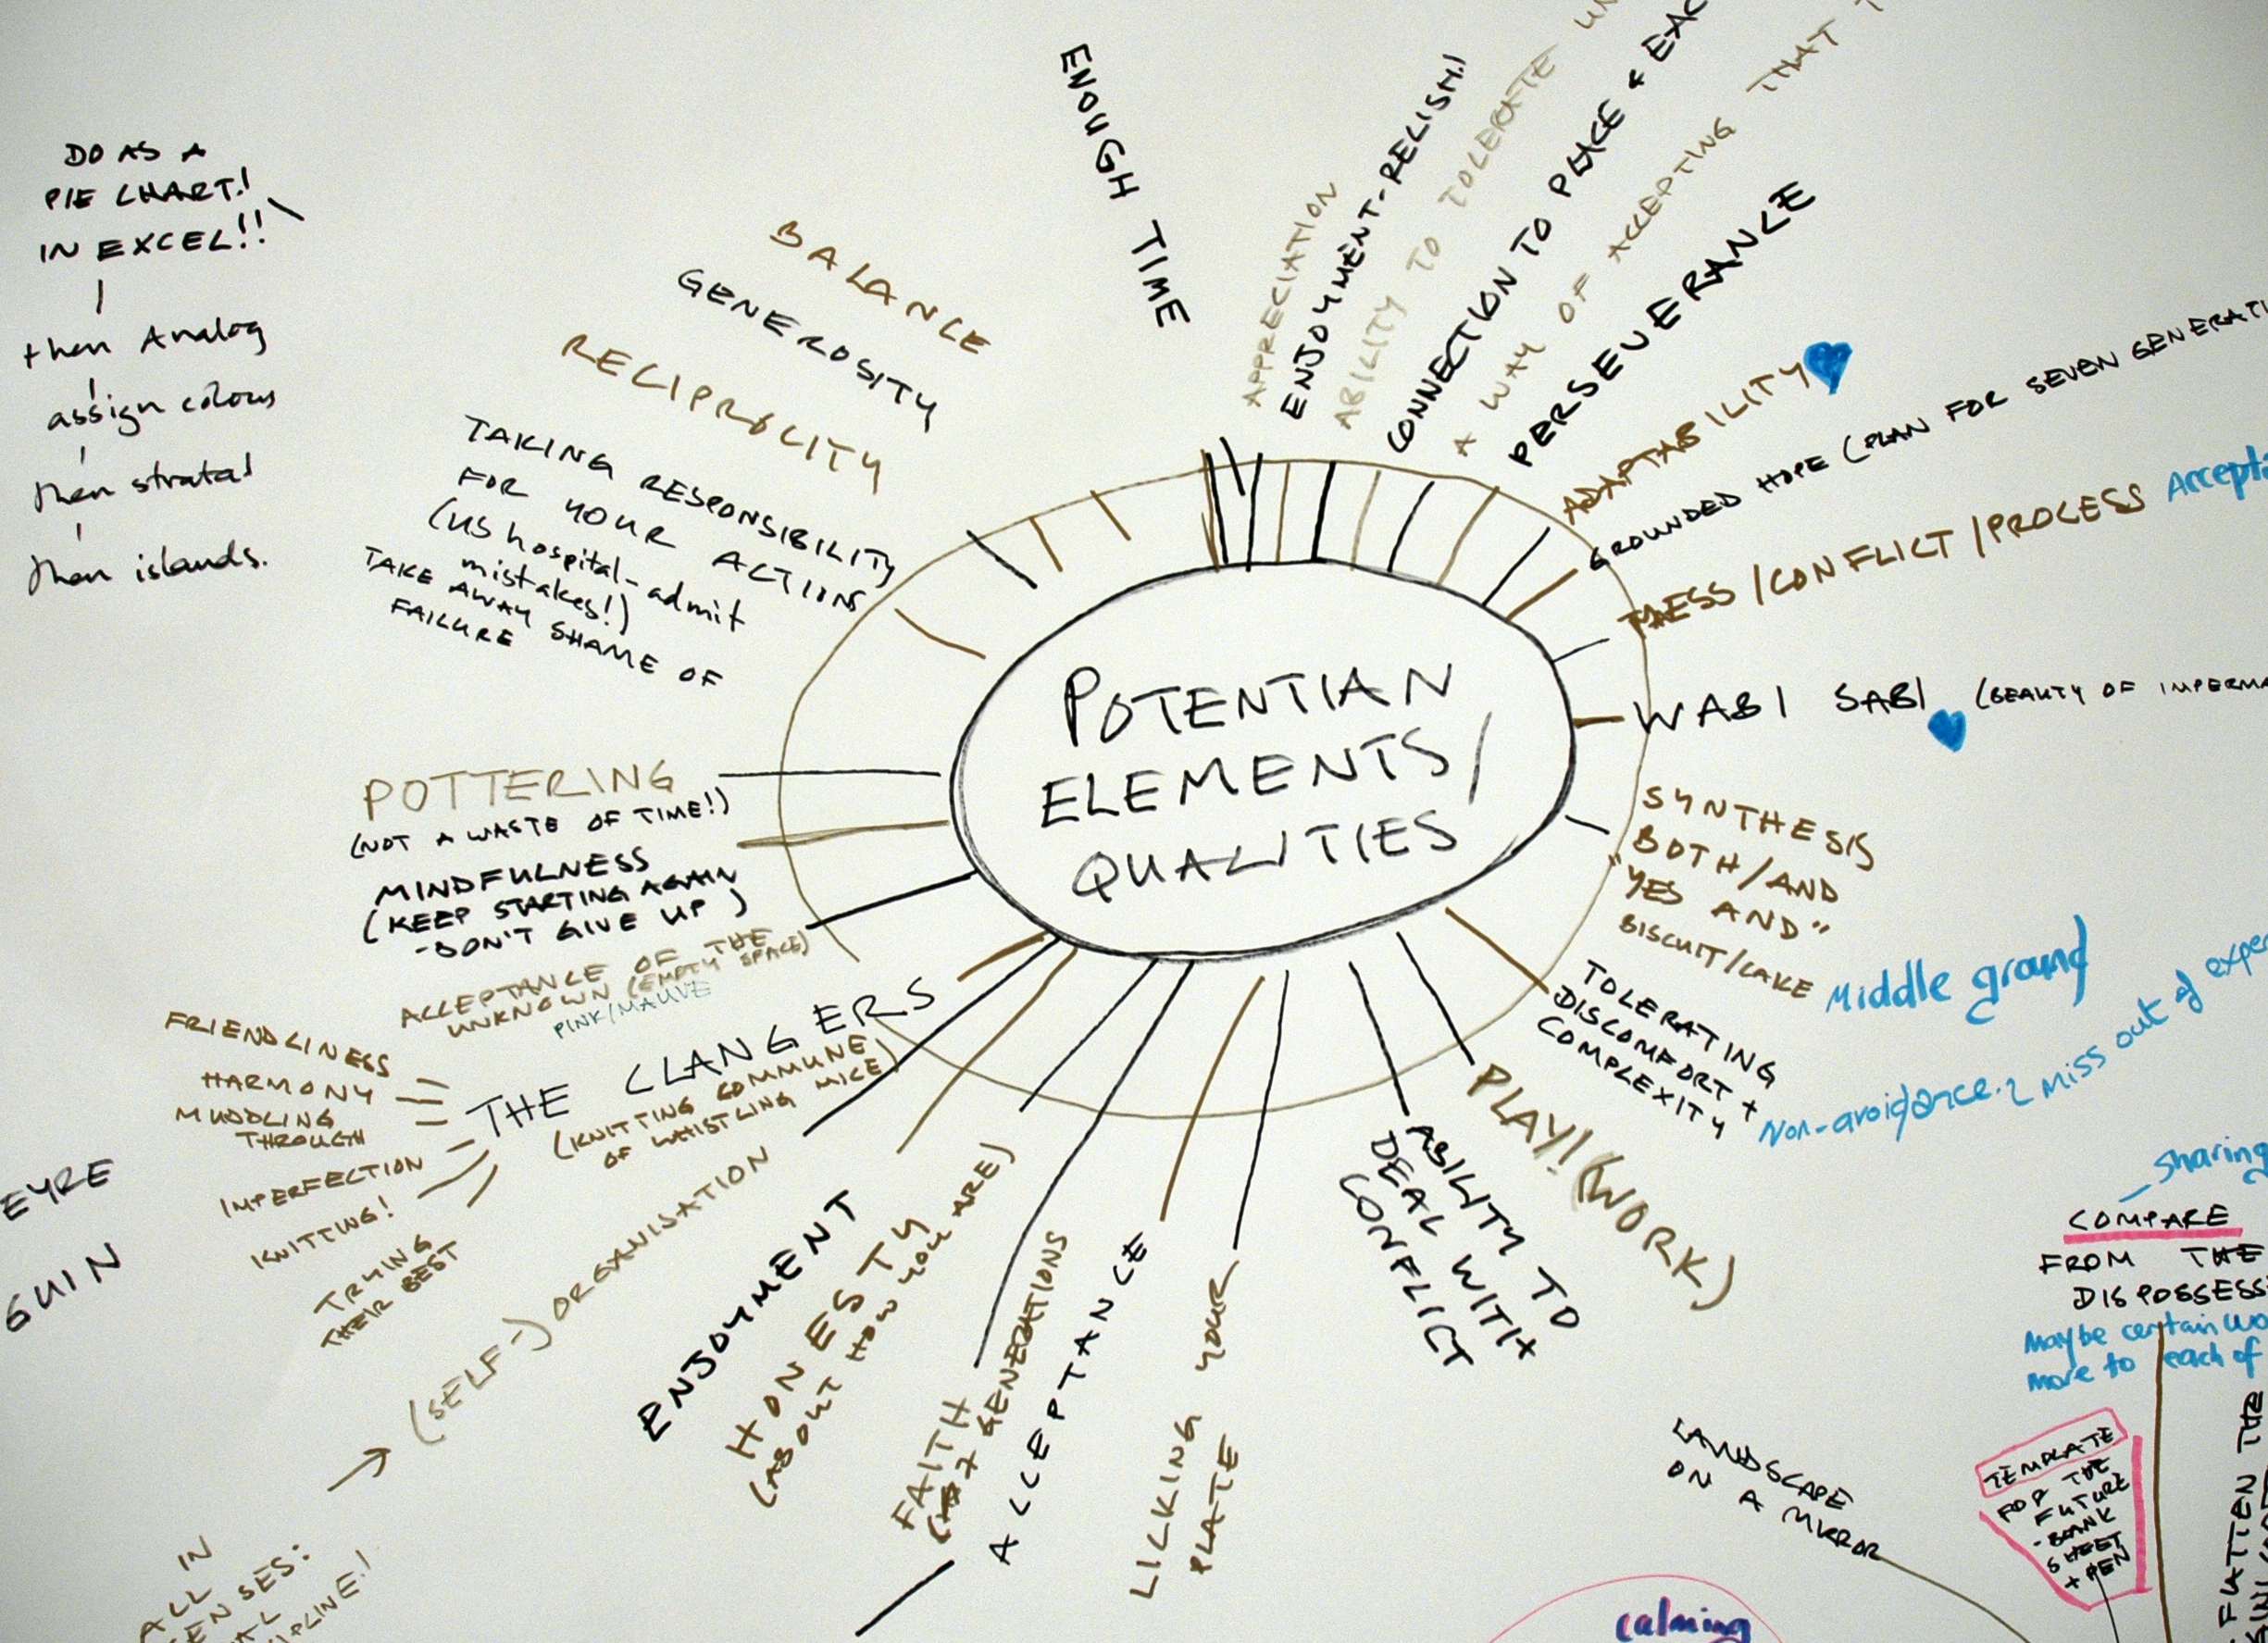 DO AS A
PIE CHART!
IN EXCEL!!
then Analog
assign colours
then strata!
then islands.
POTENTIAN
ELEMENTS/
QUALITIES
ENOUGH TIME
BALANCE
GENEROSITY
RECIPROCITY
TAKING RESPONSIBILITY
FOR YOUR ACTIONS
(US hospital-admit
mistakes!)
TAKE AWAY SHAME OF
FAILURE
POTTERING
(NOT A WASTE OF TIME!)
MINDFULNESS
(KEEP STARTING AGAIN
-DON'T GIVE UP)
ACCEPTANCE OF THE
UNKNOWN (EMPTY SPACE)
PINK/MAUVE
THE CLANGERS
(KNITTING COMMUNE
OF WHISTLING MICE)
FRIENDLINESS
HARMONY
MUDDLING
THROUGH
IMPERFECTION
KNITTING!
TRYING
THEIR BEST
(SELF-) ORGANISATION
ENJOYMENT
HONESTY
(ABOUT HOW YOU ARE)
FAITH
GENERATIONS
ACCEPTANCE
LICKING YOUR
PLATE
ABILITY TO
DEAL WITH
CONFLICT
PLAY! (WORK)
TOLERATING
DISCOMFORT +
COMPLEXITY
Non-avoidance. miss out of
SYNTHESIS
BOTH/AND
"YES AND"
BISCUIT/CAKE
Middle ground
WABI SABI (BEAUTY OF
MESS/CONFLICT/PROCESS
GROUNDED HOPE (PLAN FOR SEVEN
ADAPTABILITY
PERSEVERANCE
A WAY OF ACCEPTING THAT
CONNECTION TO PLACE +
ABILITY TO TOLERATE
ENJOYMENT-RELISH!
APPRECIATION
EYRE
GUIN
IN
ALL
sharing
COMPARE
FROM THE
Maybe certain
more to each of
LANDSCAPE
ON A MIRROR
TEMPLATE
FOR THE
FUTURE
-BLANK
SHEET
+ PEN
FLATTEN THE
calming